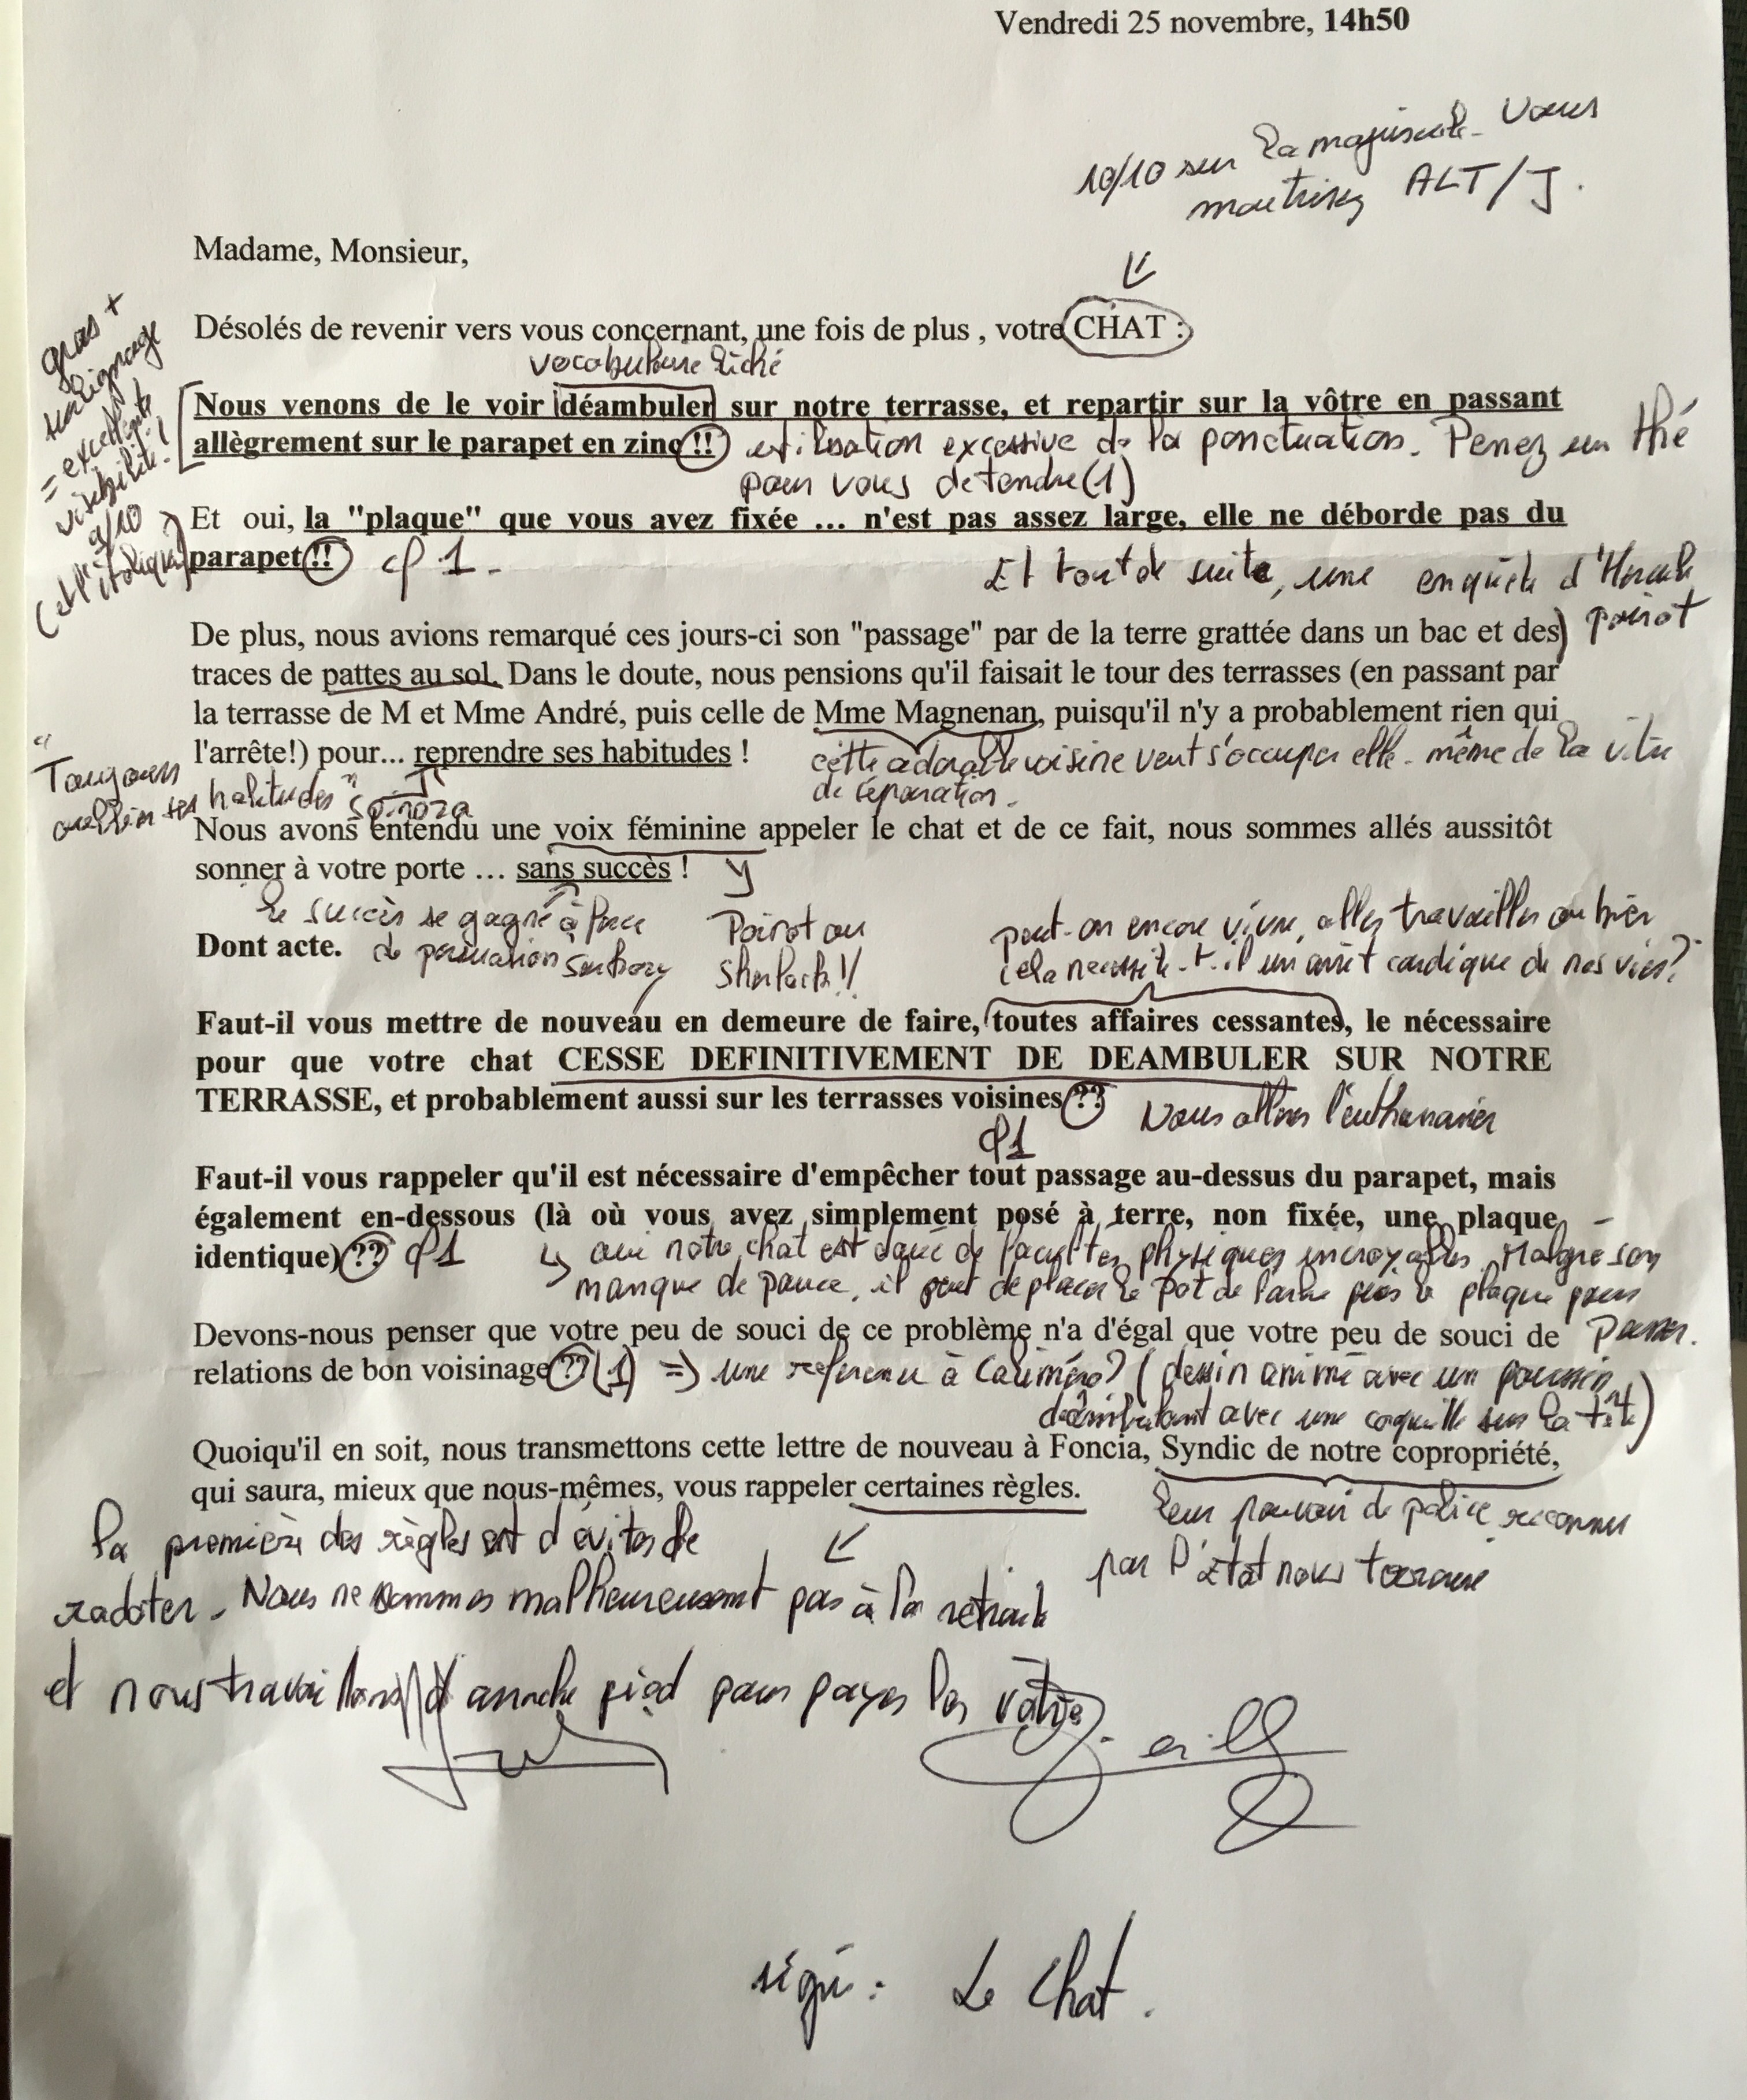 Vendredi 25 novembre, 14h50
10/10 sur la majuscule. Vous
maitrisez ALT/J.
Madame, Monsieur,
Désolés de revenir vers vous concernant, une fois de plus , votre CHAT :
vocabulaire riche
gras +
soulignage
= excellente
visibilité !
9/10
(et l'italique)
Nous venons de le voir déambuler sur notre terrasse, et repartir sur la vôtre en passant
allègrement sur le parapet en zinc !! utilisation excessive de la ponctuation. Penez un thé
pour vous detendre (1)
Et oui, la "plaque" que vous avez fixée ... n'est pas assez large, elle ne déborde pas du
parapet !! cf 1.
Et tout de suite, une enquête d'Hercule
poirot
De plus, nous avions remarqué ces jours-ci son "passage" par de la terre grattée dans un bac et des
traces de pattes au sol. Dans le doute, nous pensions qu'il faisait le tour des terrasses (en passant par
la terrasse de M et Mme André, puis celle de Mme Magnenan, puisqu'il n'y a probablement rien qui
l'arrête!) pour... reprendre ses habitudes !
cette adorable voisine veut s'occuper elle-même de la vitre
de séparation.
"Toujours
ses habitudes" Spinoza
Nous avons entendu une voix féminine appeler le chat et de ce fait, nous sommes allés aussitôt
sonner à votre porte ... sans succès !
le succès se gagne à force
de persuasion Sarkozy
Poirot ou
Sherlock !!
peut-on encore vivre, aller travailler ou bien
cela necessite-t-il un arrêt cardiaque de nos vies?
Dont acte.
Faut-il vous mettre de nouveau en demeure de faire, toutes affaires cessantes, le nécessaire
pour que votre chat CESSE DEFINITIVEMENT DE DEAMBULER SUR NOTRE
TERRASSE, et probablement aussi sur les terrasses voisines ?? Nous allons l'euthanasier
cf 1
Faut-il vous rappeler qu'il est nécessaire d'empêcher tout passage au-dessus du parapet, mais
également en-dessous (là où vous avez simplement posé à terre, non fixée, une plaque
identique) ?? cf 1 oui notre chat est doué de facultés physiques incroyables. Malgré son
manque de pouce, il peut deplacer le pot de l'arbre près la plaque pour
passer.
Devons-nous penser que votre peu de souci de ce problème n'a d'égal que votre peu de souci de
relations de bon voisinage ?? (1) => une reference à Caliméro? (dessin animé avec un poussin
déambulant avec une coquille sur la tête)
Quoiqu'il en soit, nous transmettons cette lettre de nouveau à Foncia, Syndic de notre copropriété,
qui saura, mieux que nous-mêmes, vous rappeler certaines règles.
leur pouvoir de police reconnu
par l'Etat nous terrorise
la première des règles est d'éviter de
radoter. Nous ne sommes malheureusement pas à la retraite
et nous travaillons d'arrache pied pour payer les vôtres
signé : Le Chat.